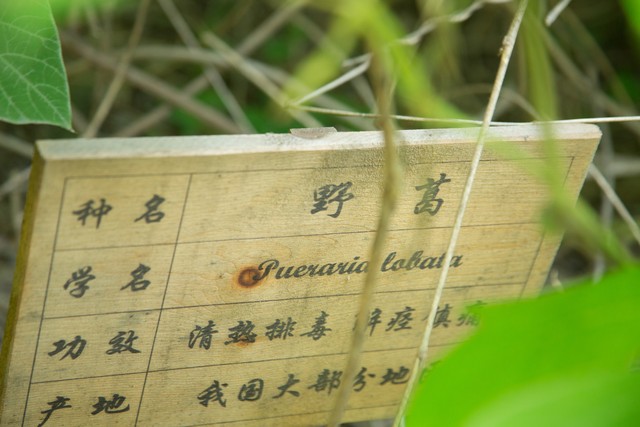 种名 野葛
学名 Pueraria lobata
功效 清热排毒 解痉镇痛
产地 我国大部分地